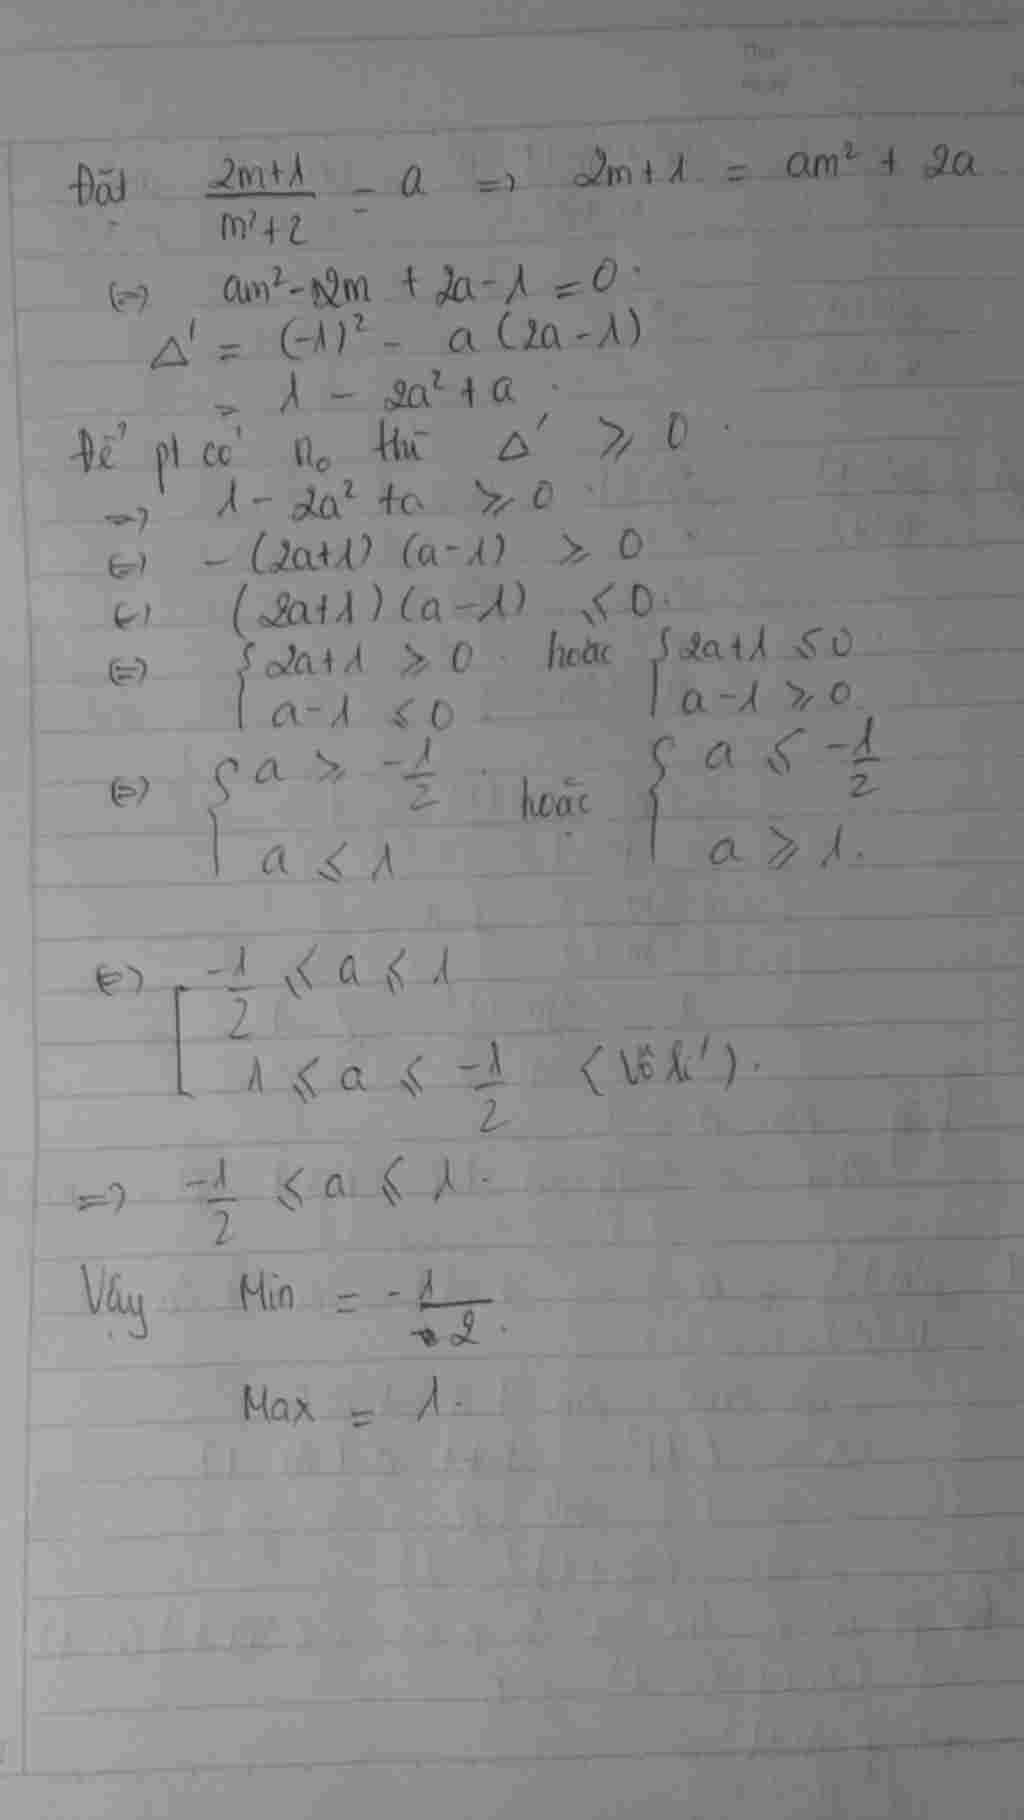 Đặt (2m+1)/(m²+2) = a => 2m+1 = am² + 2a
(=) am² - 2m + 2a - 1 = 0.
Δ' = (-1)² - a(2a-1)
= 1 - 2a² + a.
Để pt có n₀ thì Δ' ≥ 0.
=> 1 - 2a² + a ≥ 0
(=) -(2a+1)(a-1) ≥ 0
(=) (2a+1)(a-1) ≤ 0.
(=) { 2a+1 ≥ 0 ; a-1 ≤ 0 hoặc { 2a+1 ≤ 0 ; a-1 ≥ 0
(=) { a ≥ -1/2 ; a ≤ 1 hoặc { a ≤ -1/2 ; a ≥ 1.
(=) [ -1/2 ≤ a ≤ 1
1 ≤ a ≤ -1/2 (Vô lí).
=> -1/2 ≤ a ≤ 1.
Vậy Min = -1/2.
Max = 1.